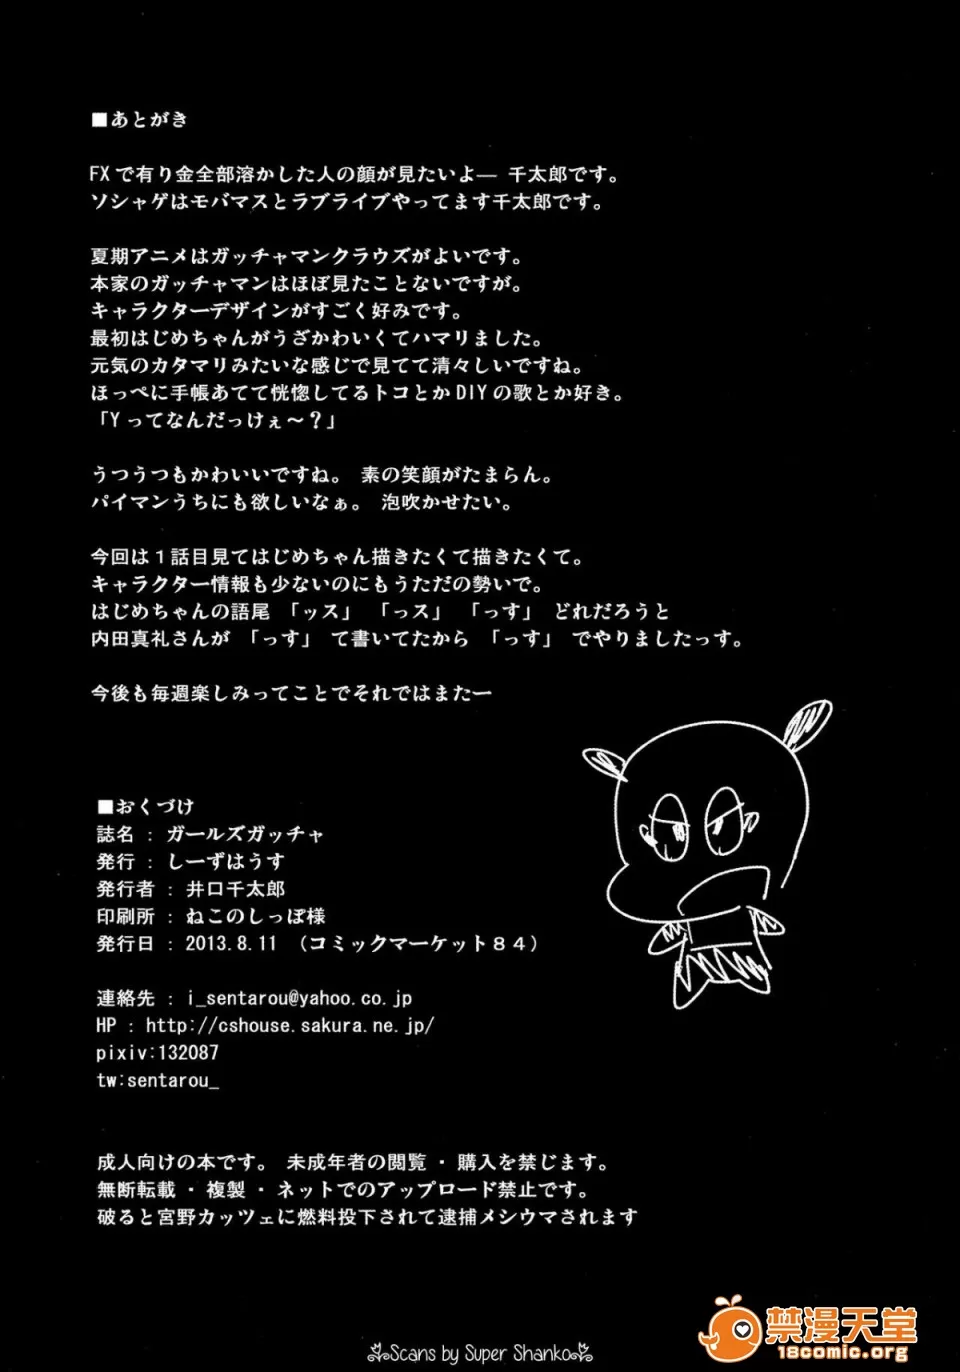 ■あとがき
FXで有り金全部溶かした人の顔が見たいよ― 千太郎です。
ソシャゲはモバマスとラブライブやってます千太郎です。
夏期アニメはガッチャマンクラウズがよいです。
本家のガッチャマンはほぼ見たことないですが。
キャラクターデザインがすごく好みです。
最初はじめちゃんがうざかわいくてハマリました。
元気のカタマリみたいな感じで見てて清々しいですね。
ほっぺに手帳あてて恍惚してるトコとかDIYの歌とか好き。
「Yってなんだっけぇ～？」
うつうつもかわいいですね。 素の笑顔がたまらん。
パイマンうちにも欲しいなぁ。 泡吹かせたい。
今回は１話目見てはじめちゃん描きたくて描きたくて。
キャラクター情報も少ないのにもうただの勢いで。
はじめちゃんの語尾 「ッス」 「っス」 「っす」 どれだろうと
内田真礼さんが 「っす」 て書いてたから 「っす」 でやりましたっす。
今後も毎週楽しみってことでそれではまたー
■おくづけ
誌名 : ガールズガッチャ
発行 : しーずはうす
発行者 : 井口千太郎
印刷所 : ねこのしっぽ様
発行日 : 2013.8.11 （コミックマーケット８４）
連絡先 : i_sentarou@yahoo.co.jp
HP : http://cshouse.sakura.ne.jp/
pixiv:132087
tw:sentarou_
成人向けの本です。 未成年者の閲覧・購入を禁じます。
無断転載・複製・ネットでのアップロード禁止です。
破ると宮野カッツェに燃料投下されて逮捕メシウマされます
Scans by Super Shanko
禁漫天堂
18comic.org